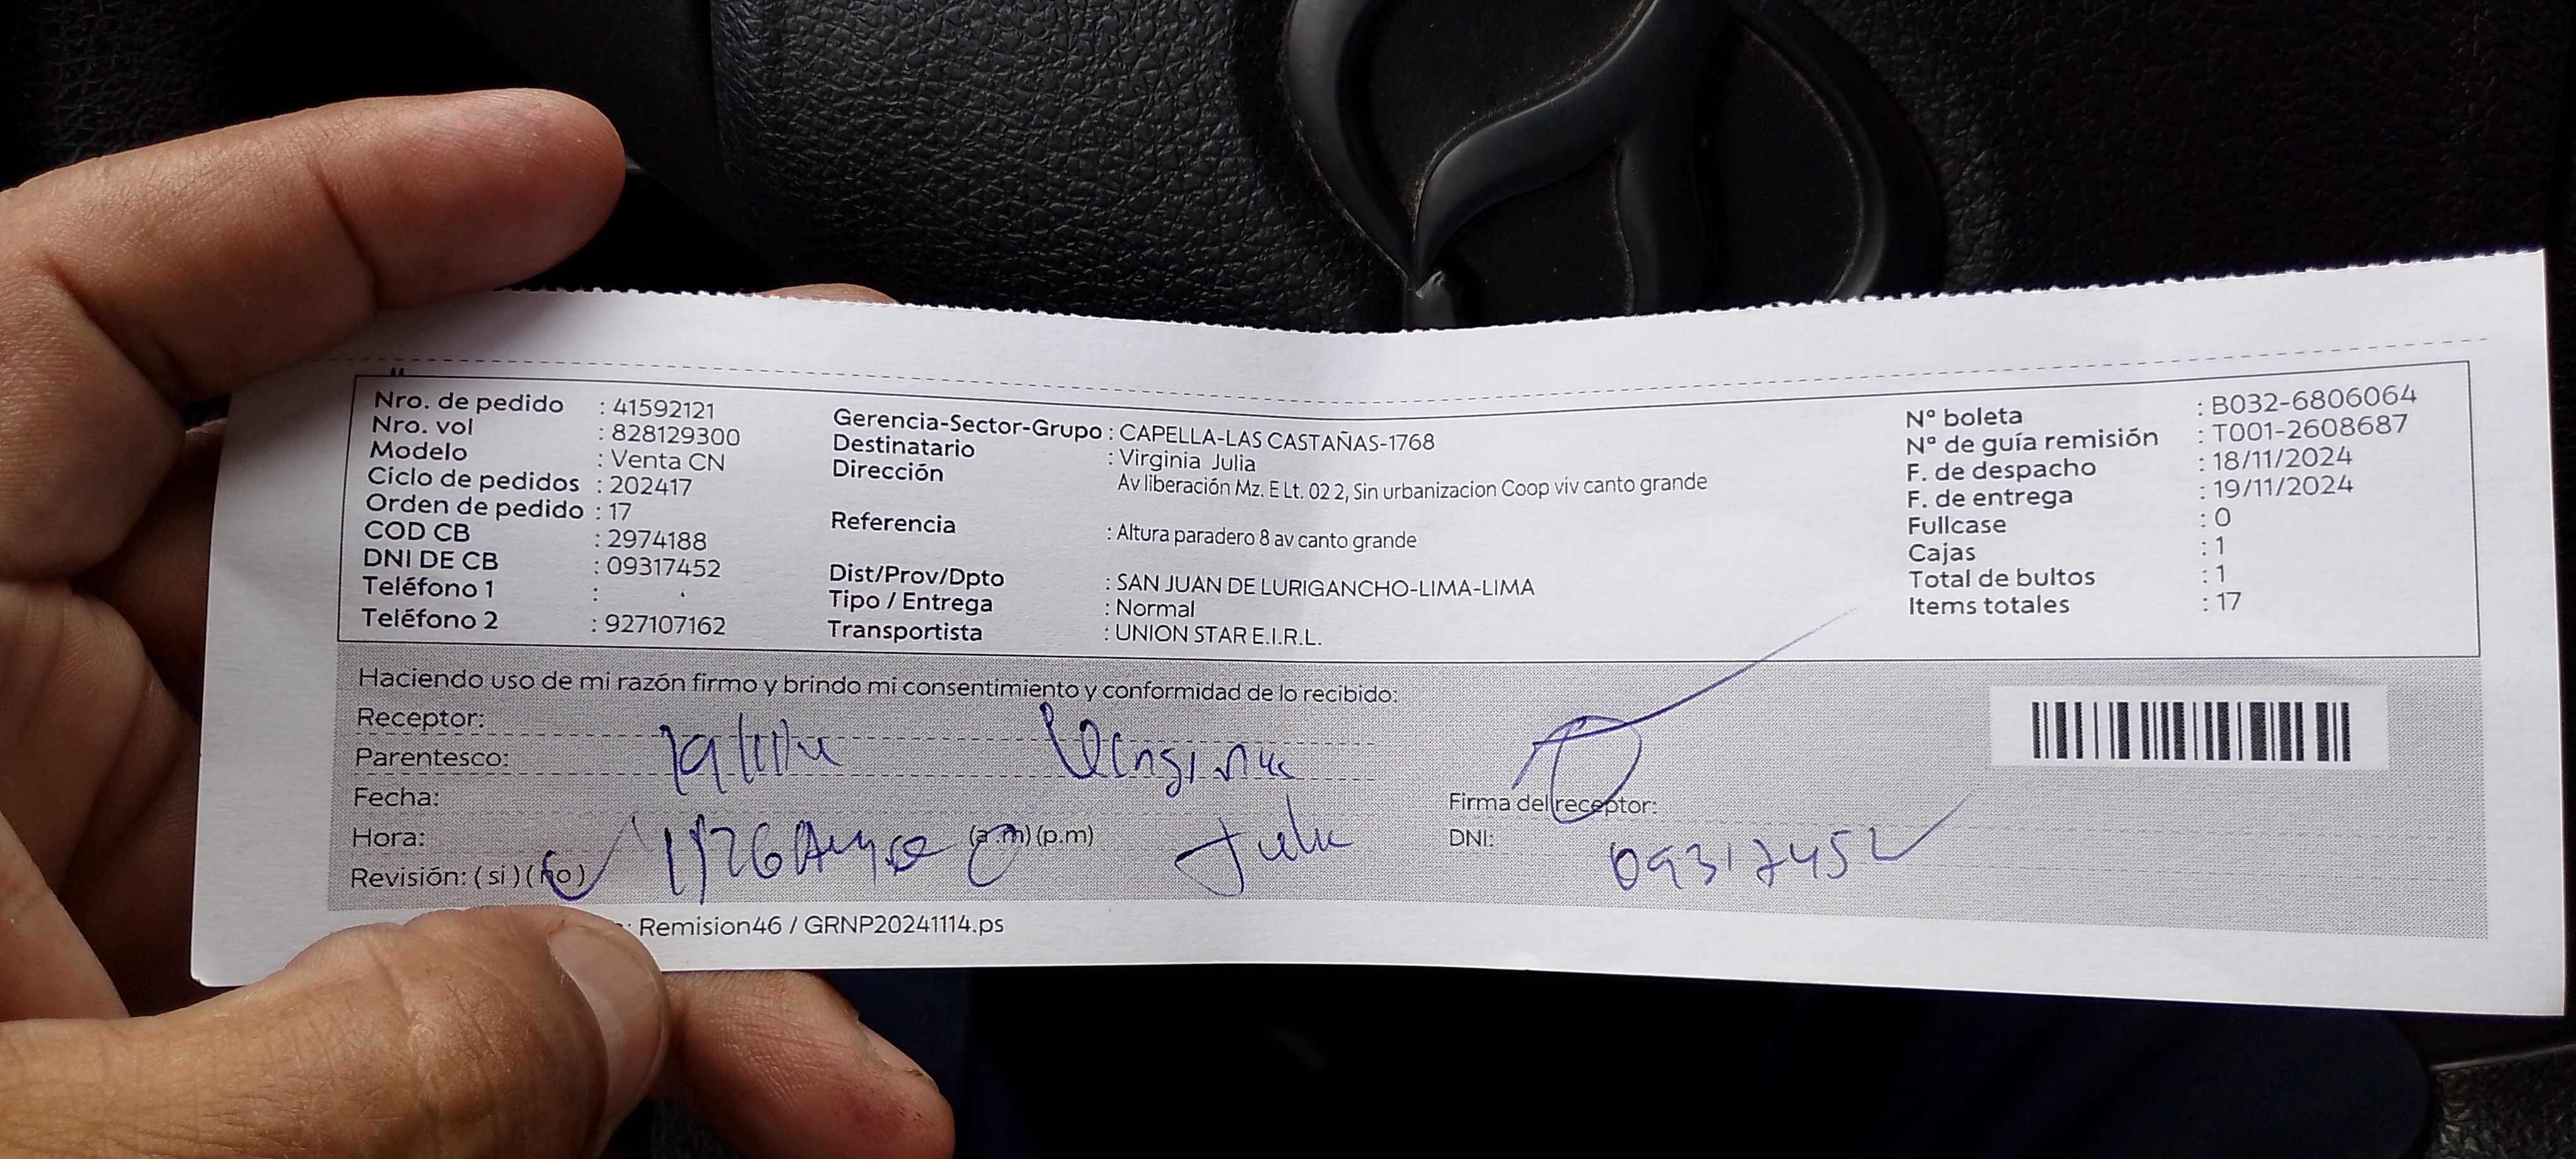 Nro. de pedido : 41592121
Nro. vol : 828129300
Modelo : Venta CN
Ciclo de pedidos : 202417
Orden de pedido : 17
COD CB : 2974188
DNI DE CB : 09317452
Teléfono 1 :
Teléfono 2 : 927107162
Gerencia-Sector-Grupo : CAPELLA-LAS CASTAÑAS-1768
Destinatario : Virginia Julia
Dirección Av liberación Mz. E Lt. 02 2, Sin urbanizacion Coop viv canto grande
Referencia : Altura paradero 8 av canto grande
Dist/Prov/Dpto : SAN JUAN DE LURIGANCHO-LIMA-LIMA
Tipo / Entrega : Normal
Transportista : UNION STAR E.I.R.L.
Nº boleta : B032-6806064
Nº de guía remisión : T001-2608687
F. de despacho : 18/11/2024
F. de entrega : 19/11/2024
Fullcase : 0
Cajas : 1
Total de bultos : 1
Items totales : 17
Haciendo uso de mi razón firmo y brindo mi consentimiento y conformidad de lo recibido:
Receptor:
Parentesco:
Fecha:
Hora: (a.m) (p.m) Julia
Revisión: ( si ) ( no )
Firma del receptor:
DNI: 09317452
: Remision46 / GRNP20241114.ps